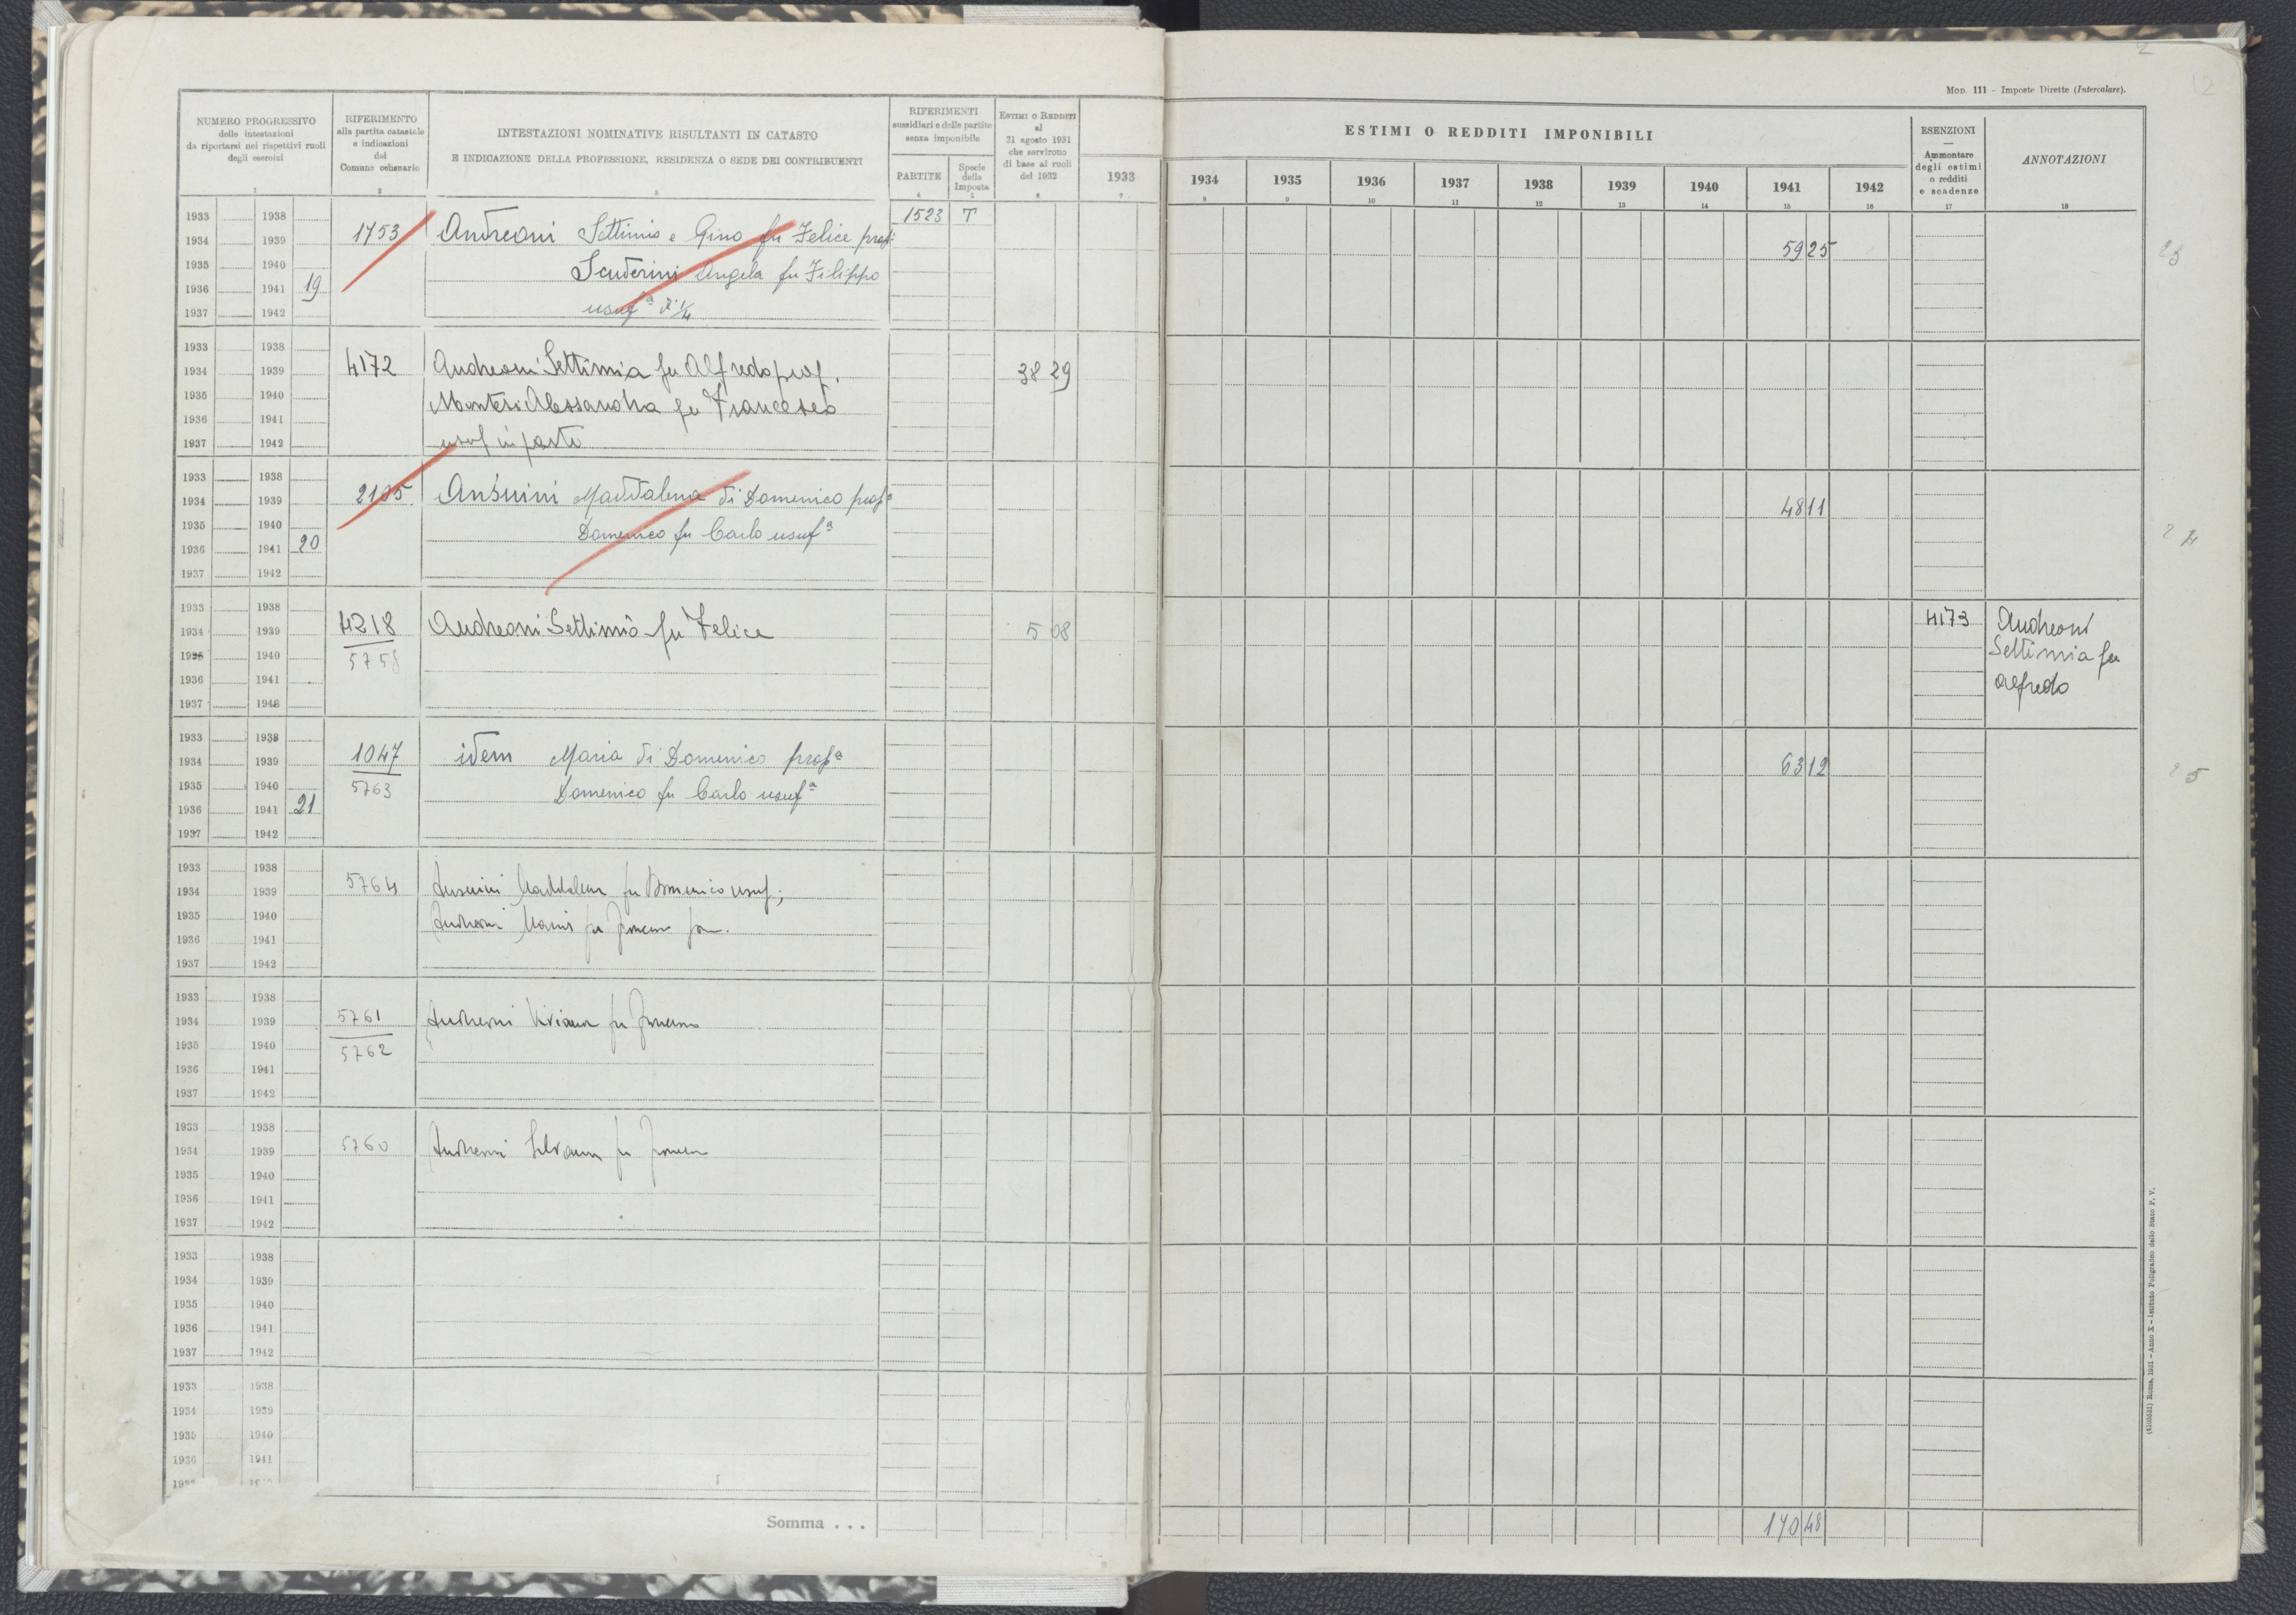 2
12
Mod. 111 - Imposte Dirette (Intercalare).
NUMERO PROGRESSIVO
delle intestazioni
da riportarsi nei rispettivi ruoli
degli esercizi
1
RIFERIMENTO
alla partita catastale
e indicazioni
del
Comune censuario
2
INTESTAZIONI NOMINATIVE RISULTANTI IN CATASTO
E INDICAZIONE DELLA PROFESSIONE, RESIDENZA O SEDE DEI CONTRIBUENTI
3
RIFERIMENTI
sussidiari e delle partite
senza imponibile
PARTITE
4
Specie
della
Imposta
5
Estimi o Redditi
al
31 agosto 1931
che servirono
di base ai ruoli
del 1932
6
ESTIMI O REDDITI IMPONIBILI
1933 1934 1935 1936 1937 1938 1939 1940 1941 1942
7 8 9 10 11 12 13 14 15 16
ESENZIONI
Ammontare
degli estimi
o redditi
e scadenze
17
ANNOTAZIONI
18
1933 1938 1523 T
1934 1939 1753 Andreoni Settimio e Gino fu Felice prop: 5925
1935 1940 Scuderini Angela fu Filippo
1936 1941 19
1937 1942 usuf.a di 1/4
23
1933 1938
1934 1939 4172 Andreoni Settimia fu Alfredo prop. 38 29
1935 1940 Monteri Alessandra fu Francesco
1936 1941
1937 1942 usuf in parte
1933 1938
1934 1939 2195 Ansuini Maddalena di Domenico prop.a 4811
1935 1940 Domenico fu Carlo usuf.a
1936 1941 20
1937 1942
24
1933 1938
1934 1939 4218 Andreoni Settimio fu Felice 5 08 4173 Andreoni
1935 1940 5758 Settimia fu
1936 1941 Alfredo
1937 1942
1933 1938
1934 1939 1047 idem Maria di Domenico prop.a 6312
1935 1940 5763 Domenico fu Carlo usuf.a
1936 1941 21
1937 1942
25
1933 1938
1934 1939 5764 Ansuini Maddalena fu Domenico usuf;
1935 1940 Andreoni
1936 1941
1937 1942
1933 1938
1934 1939 5761 Andreoni Viviana fu
1935 1940 5762
1936 1941
1937 1942
1933 1938
1934 1939 5760 Andreoni Silvana fu
1935 1940
1936 1941
1937 1942
1933 1938
1934 1939
1935 1940
1936 1941
1937 1942
1933 1938
1934 1939
1935 1940
1936 1941
Somma . . . 17048
Roma, 1931 - Anno X - Istituto Poligrafico dello Stato P. V.